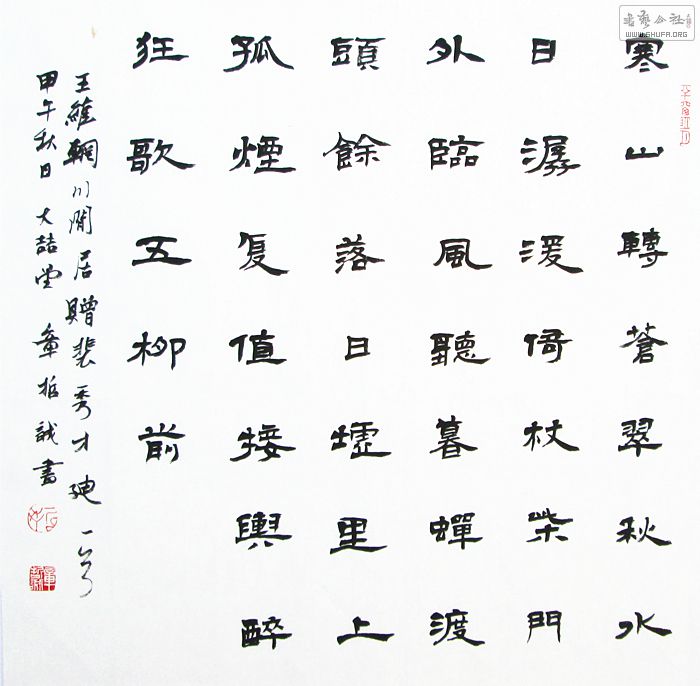 寒山轉蒼翠秋水
日潺湲倚杖柴門
外臨風聽暮蟬渡
頭餘落日墟里上
孤煙复值接輿醉
狂歌五柳前
王維輞川閒居贈裴秀才迪一首
甲午秋日大喆堂章哲誠書
書藝公社
WWW.SHUFA.ORG